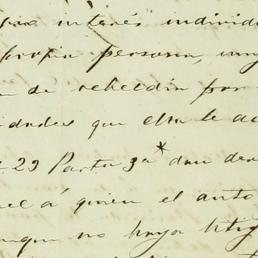 por interés individu
propia persona, un
de rebeldia por
idades que ella le a
23 Parta 3a* dan der
el á quien el auto
nque no haya litig